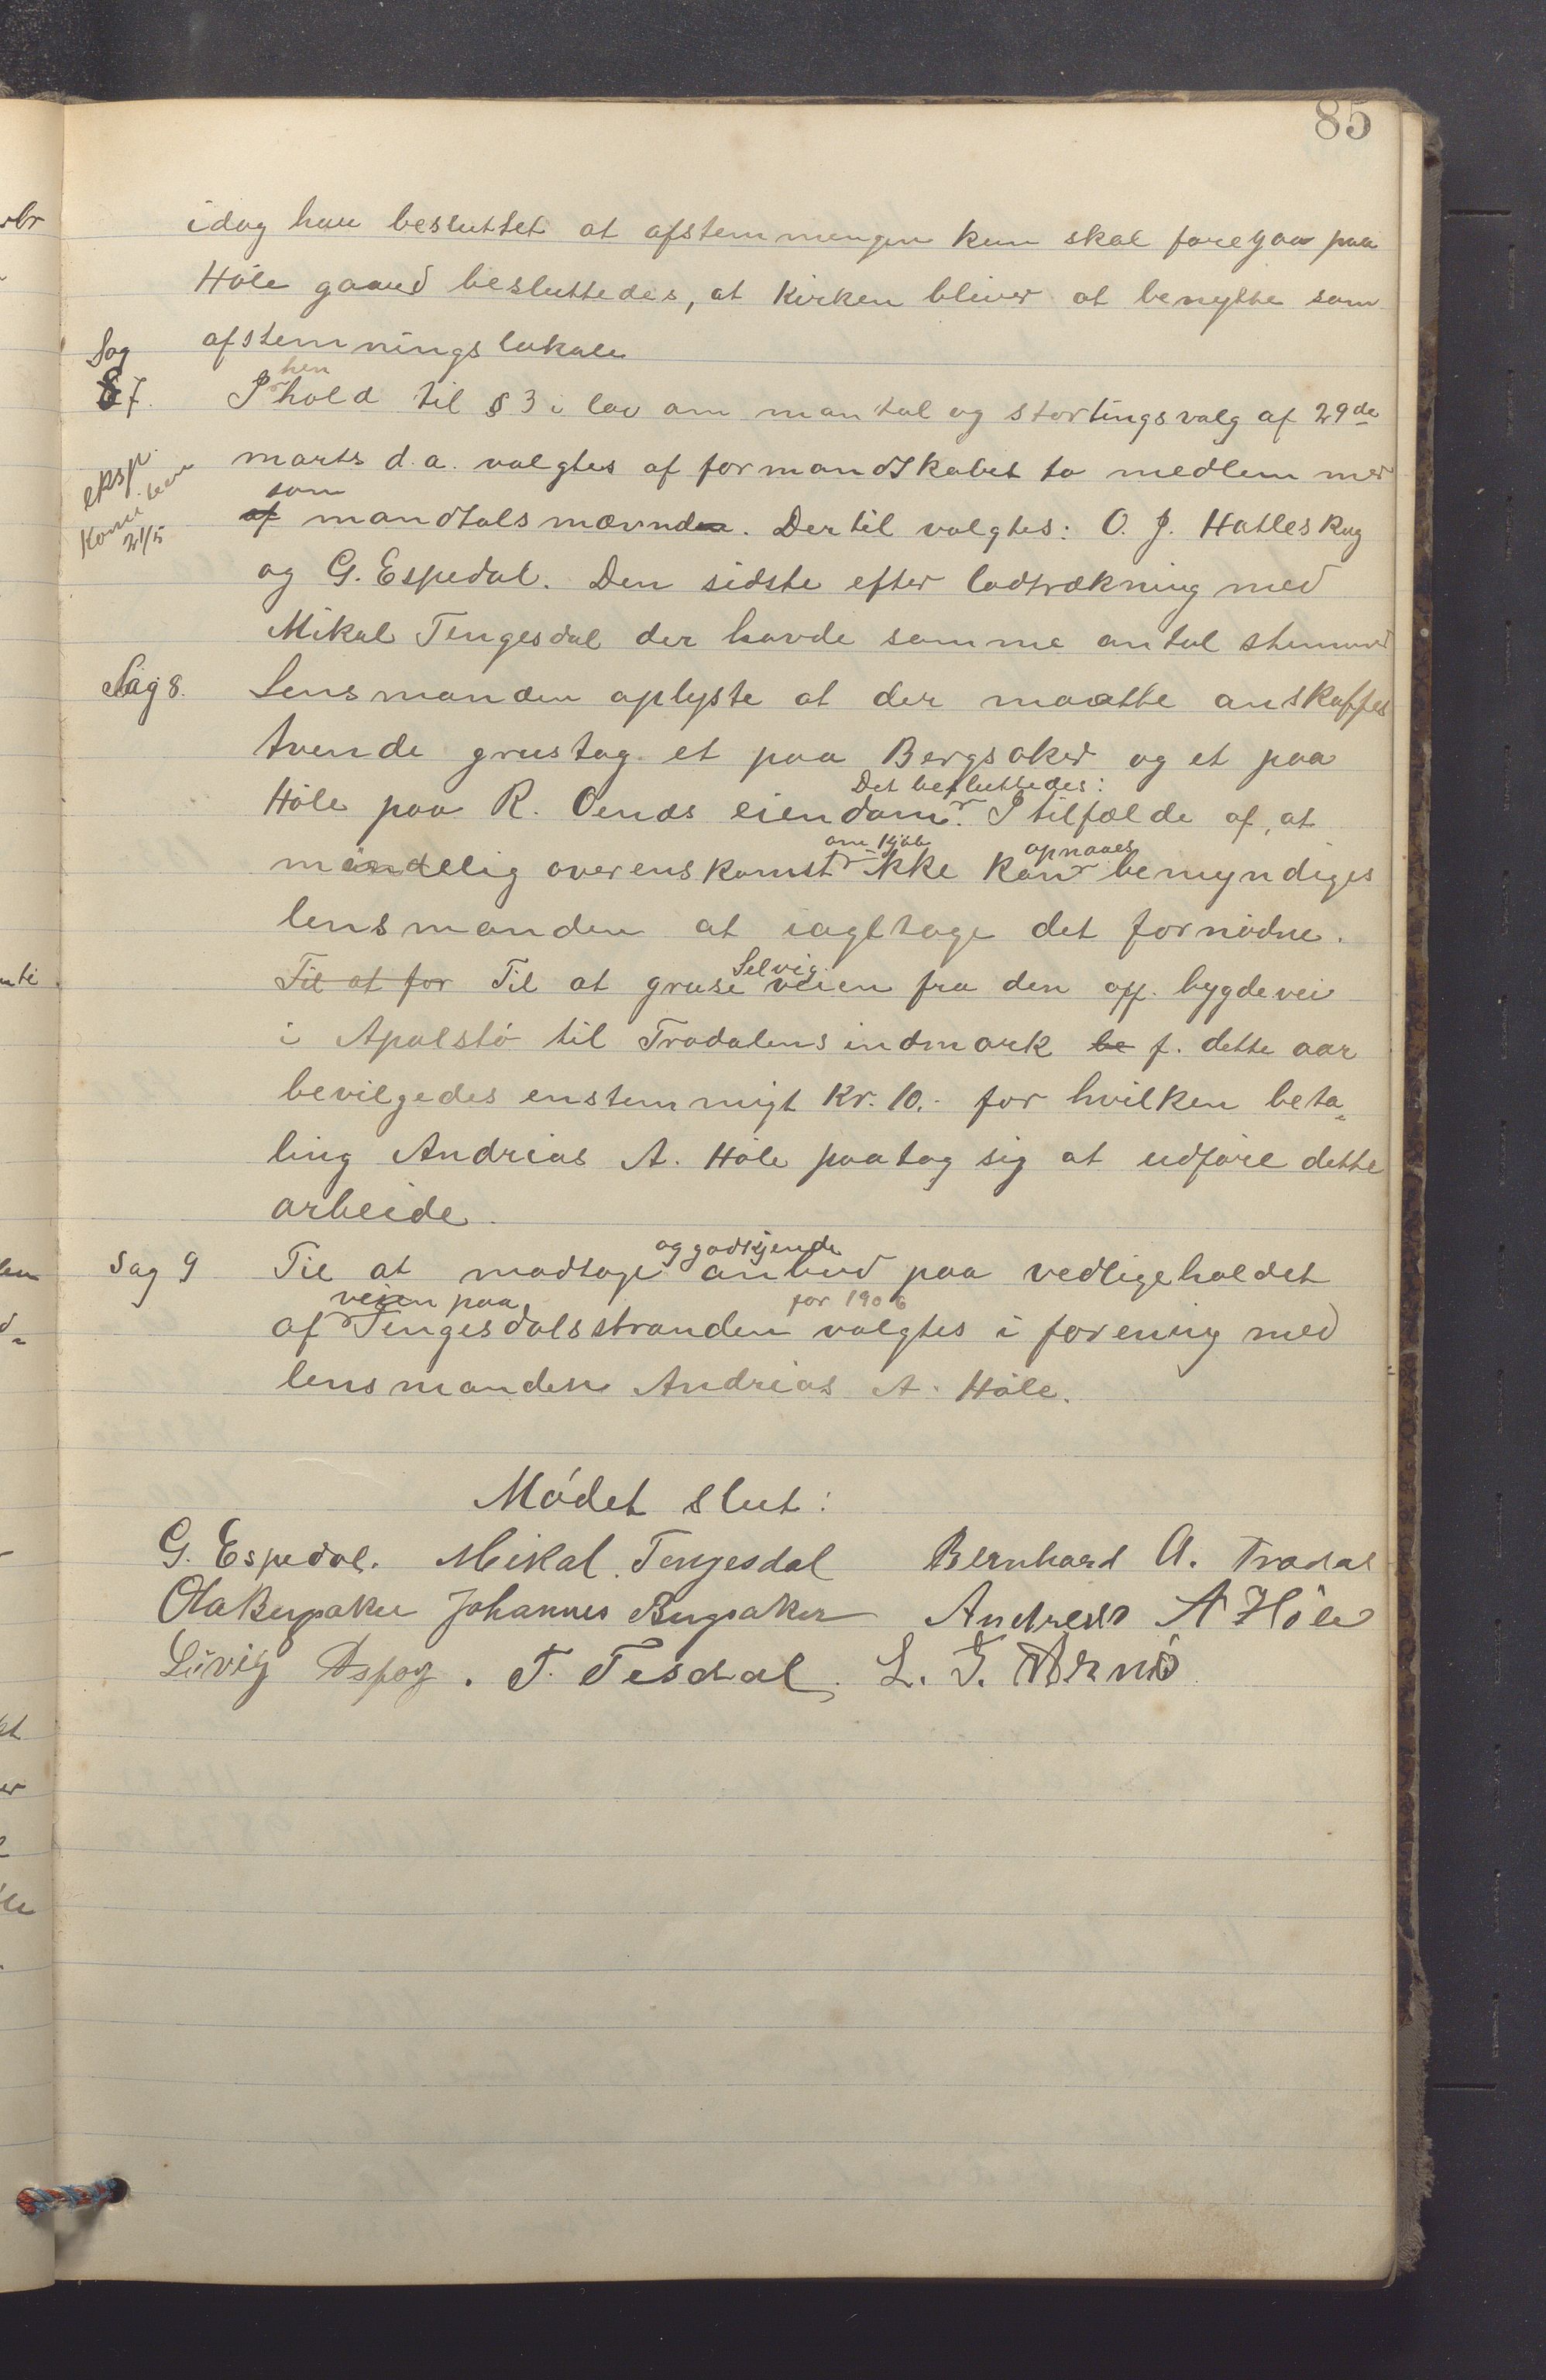 85
idag have besluttet at afstemningen kun skal foregaa paa
Höle gaard besluttedes, at Kirken bliver at benytte som
afstemningslokale
Sag
7. I henhold til § 3 i lov om mantal og stortingsvalg af 29de
eksp.
marts d.a. valgtes af formandskabet to medlemmer
21/5
af som mandtalsmævnd. Dertil valgtes: O. J. Hatleskog
og G. Espedal. Den sidste efter lodtrækning med
Mikal Tengesdal der havde samme antal stemmer
Sag 8. Lensmanden oplyste at der maatte anskaffes
tvende grustag et paa Bergsaker og et paa
Det besluttedes:
Höle paa R. Oends eiendom. I tilfælde af, at
om kjöb opnaaes
mindelig overenskomst ikke kan bemyndiges
lensmanden at iagttage det fornödne.
Selvig
Til at for Til at gruse veien fra den off. bygdevei
i Apalstö til Tradalens indmark be f. dette aar
bevilgedes enstemmigt Kr. 10.- for hvilken beta-
ling Andrias A. Höle paatog sig at udföre dette
arbeide.
og godkjende
Sag 9 Til at modtage anbud paa vedligeholdet
veien paa for 1906
af Tengesdalsstranden valgtes i forening med
lensmanden Andrias A. Höle.
Mödet slut:
G. Espedal. Mikal Tengesdal Bernhard A. Tradal
Ola Bergsaker Johannes Bergsaker Andreas A Höle
Lövig Aspøy. T. Tesdal. L. T. Arnö